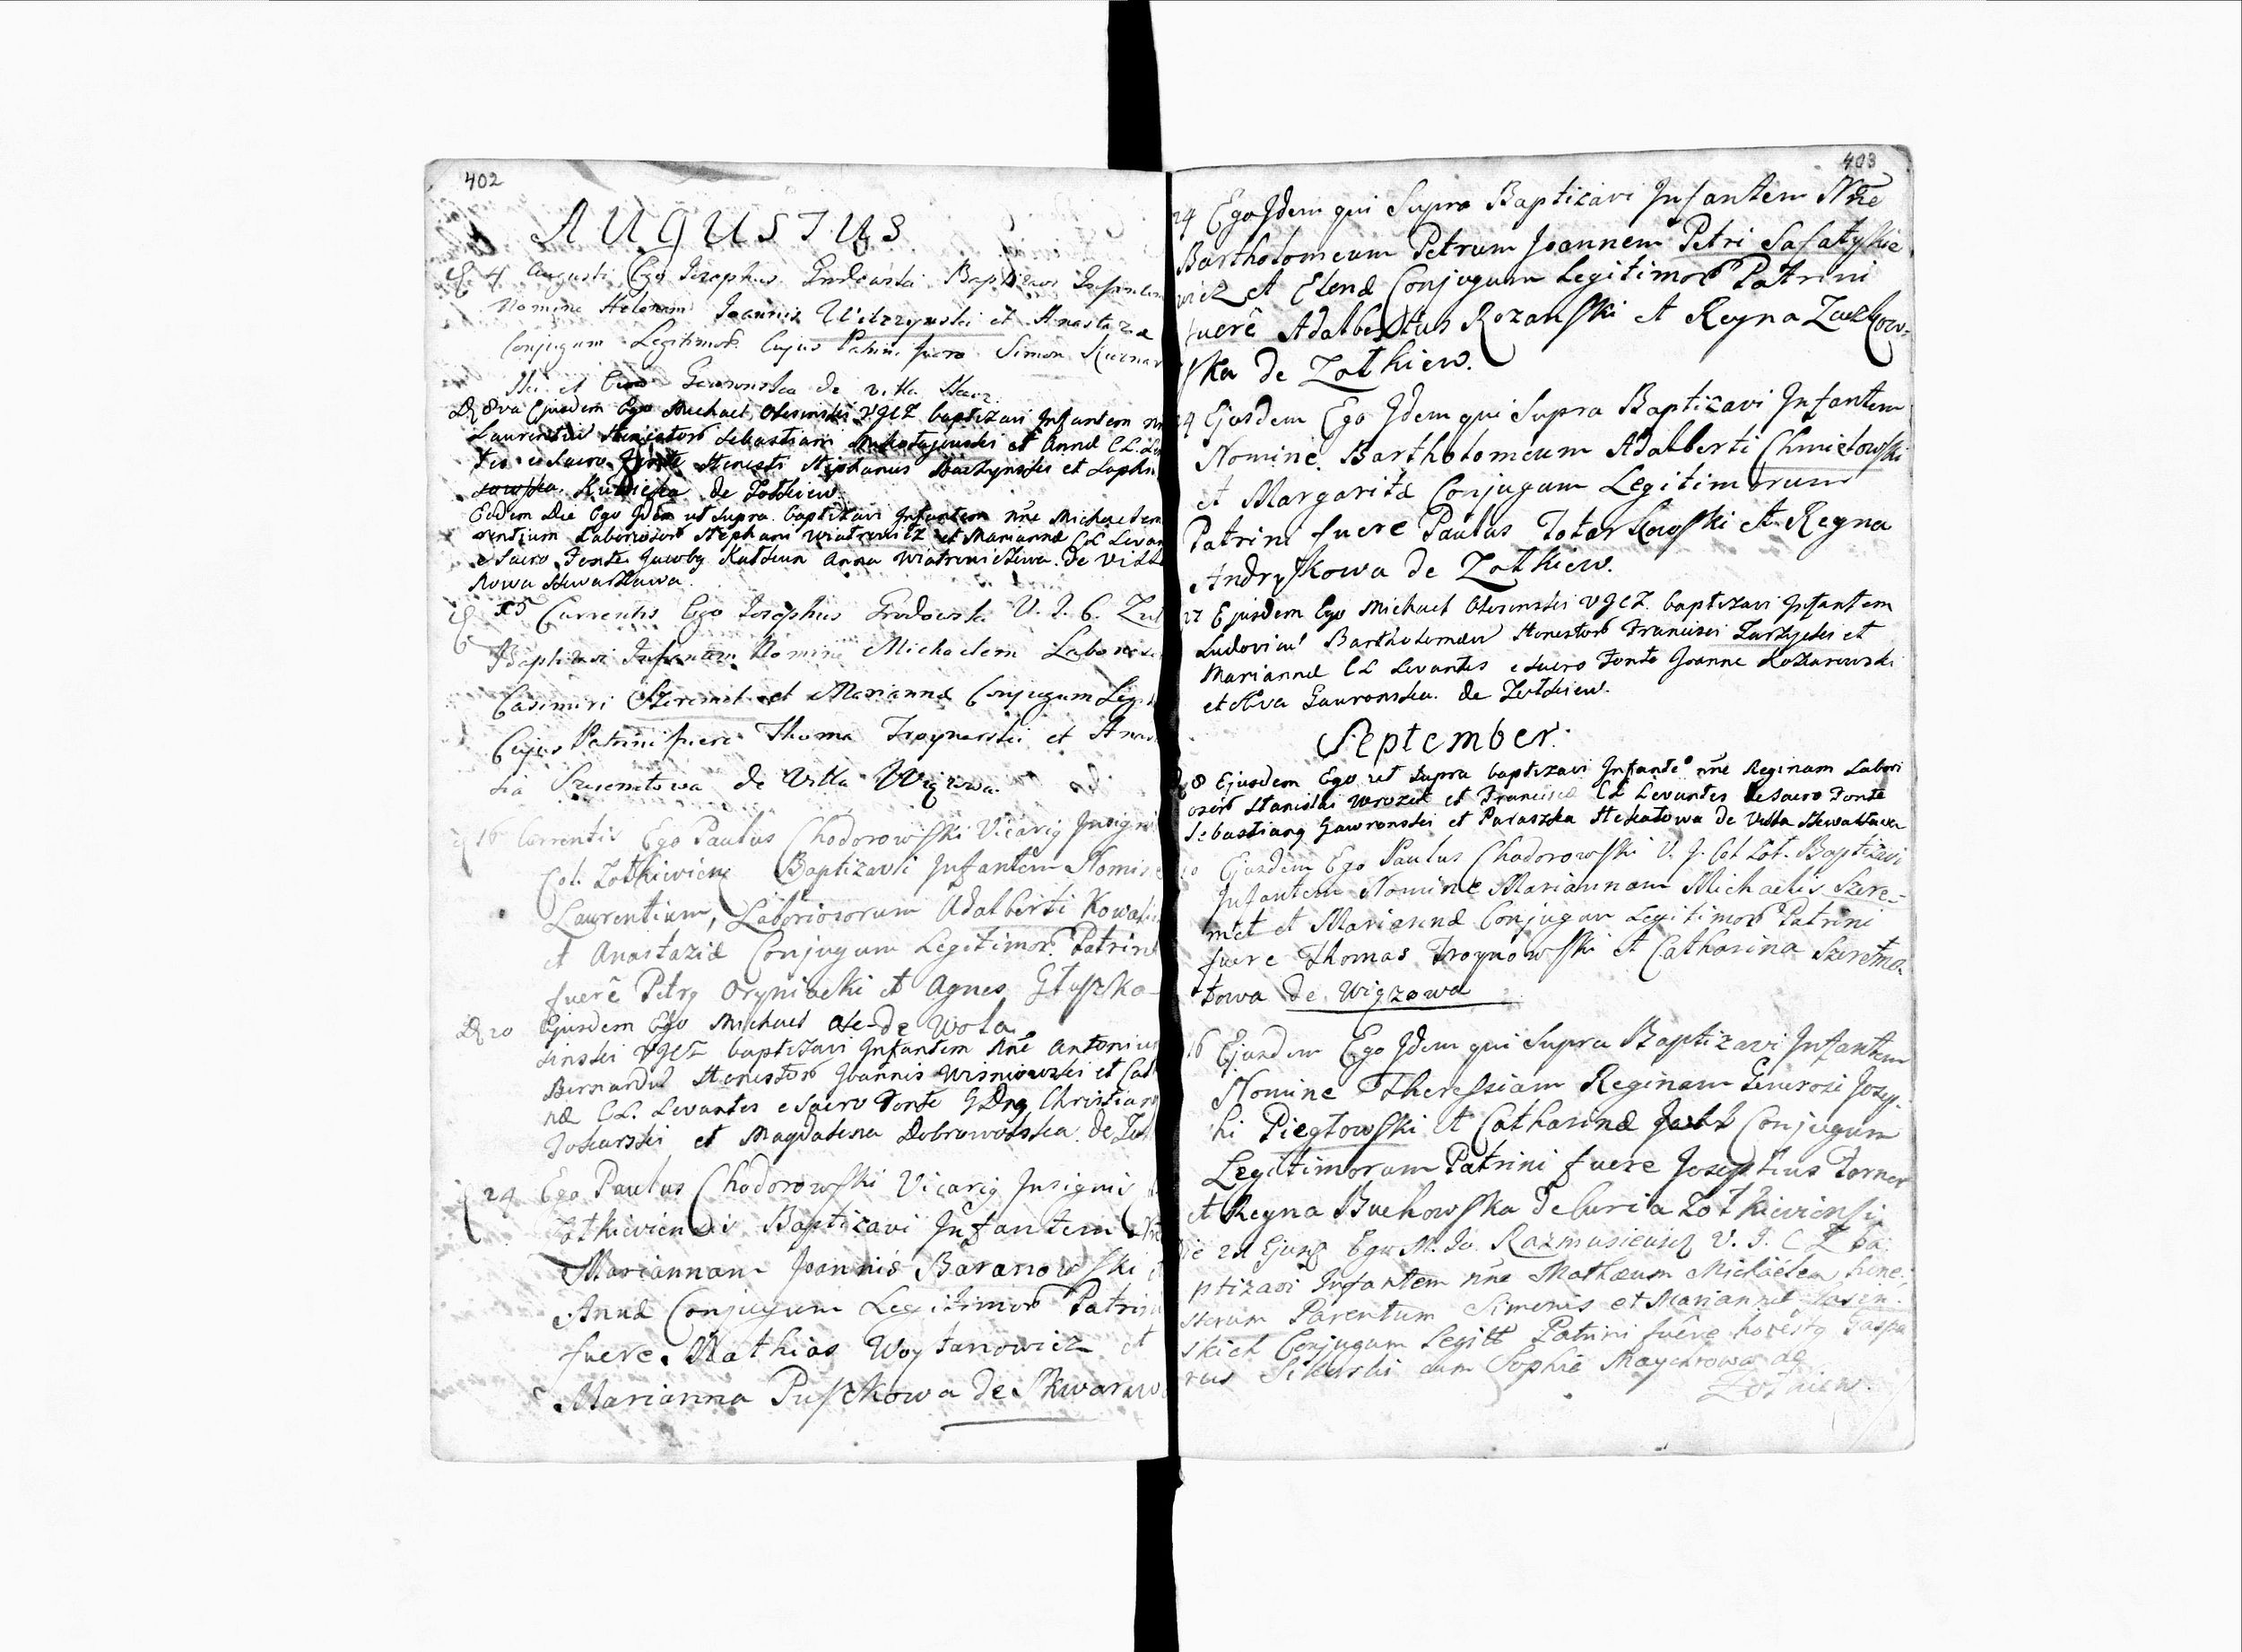 402
AUGUSTUS
4 Augusti Ego Josephus Grodowski Baptizavi Infantem
Nomine Helenam Joannis Wilczynski et Anastaziæ
Conjugum Legitimor. Cujus Patrini fuere Simon
ski et Eva Gawronska de villa
8va Ejusdem Ego Michael Olesinski V.J.C.Z. baptizavi Infantem
Laurentiu Honestorũ Sebastiani et Annæ C.L.
tes e Sacro Fonte Honesti Stephanus et Sophia
Kulbicka de Zołkiew.
Eodem Die Ego Idem ut Supra baptizavi Infantem nñe Michaelem
rentium Laboriosorũ Stephani Wiatrowicz et Mariannæ CL Levan
e Sacro Fonte Jacobg Anna Wiatrowiczowa. de Villa
15 Currentis Ego Josephus Grodowski V. J. C. Zol
Baptizavi Infantem Nomine Michaelem Laborioso
Casimiri Szeremet et Mariannæ Conjugum Legit
Cujus Patrini fuere Thoma Troynarski et Anas
sia de Villa Wiązowa.
16 Currentis Ego Paulus Chodorowski Vicarig Insignis
Col. Zołkieviens Baptizavi Infantem Nomine
Laurentium, Laboriosorum Adalberti Kowalski
et Anastaziæ Conjugum Legitimorũ Patrini
fuerẽ Petrg Oryniacki et Agnes Głuszko-
D 20 Ejusdem Ego Michael Ole- de Wola.
sinski VJCZ baptizavi Infantem Nñe Antonium
Bernardũ Honestorũ Joannis Wisniowski et Cat
næ C.L. Levantes e Sacro Fonte GDng Christiang
Tokarski et Magdalena Dobrowolska. de Zoł
24 Ego Paulus Chodorowski Vicarig Insignis
Zołkieviensis Baptizavi Infantem Nñe
Mariannam Joannis Baranowski et
Annæ Conjugum Legitimorũ Patrini
fuere Mathias Woytanowicz et
Marianna Puszkowa de Skwarawa
403
24 Ego Idem qui Supra Baptizavi Infantem Nñe
Bartholomeum Petrum Joannem Petri Safatyskie
wicz et Elenæ Conjugum Legitimorũ Patrini
fuerê Adalbertus Rozanski et Regna Zuzkow-
ska de Zołkiew.
24 Ejusdem Ego Idem qui Supra Baptizavi Infantem
Nomine Bartholomeum Adalberti Chmielowski
et Margaritæ Conjugum Legitimorum
Patrini fuere Paulus Totarkowski et Regna
Andryskowa de Zołkiew.
27 Ejusdem Ego Michael Olesinski VJCZ. baptizavi Infantem
Ludovicũ Bartholomæu Honestorũ Francisci Zarzycki et
Mariannæ CL Levantes e Sacro Fonte Joanne Kozłarowski
et Eva Gawronska. de Zołkiew.
September.
8 Ejusdem Ego ut Supra baptizavi Infante nñe Reginam Labori
osorũ Stanislai Wrozek et Franciscæ CL Levantes de Sacro Fonte
Sebastiang Gawronski et Paraszka Hukałowa de Villa
10 Ejusdem Ego Paulus Chodorowski V. J. Col Zoł. Baptizavi
Infantem Nomine Mariannam Michaelis Szere-
met et Mariannæ Conjugum Legitimorũ Patrini
fuere Thomas Troynowski et Catharina Szereme-
towa de Wiązowa
16 Ejusdem Ego Idem qui Supra Baptizavi Infantem
Nomine Theressiam Reginam Generosi Josep-
hi Piegłowski et Catharinæ Conjugum
Legitimorum Patrini fuere Josephus Torner
et Regna Buchowska de Curia Zołkieviensi
Die 21 Ejusd Ego M. Jo. Razmusiewicz V. J. C Z ba-
ptizavi Infantem nñe Mathæum Michaelem hone-
storum Parentum Simonis et Mariannæ Jasin-
skich Conjugum Legitt Patrini fuêre honestg Gaspa
rus Sikorski cum Sophia Maychrowa de
Zołkiew.